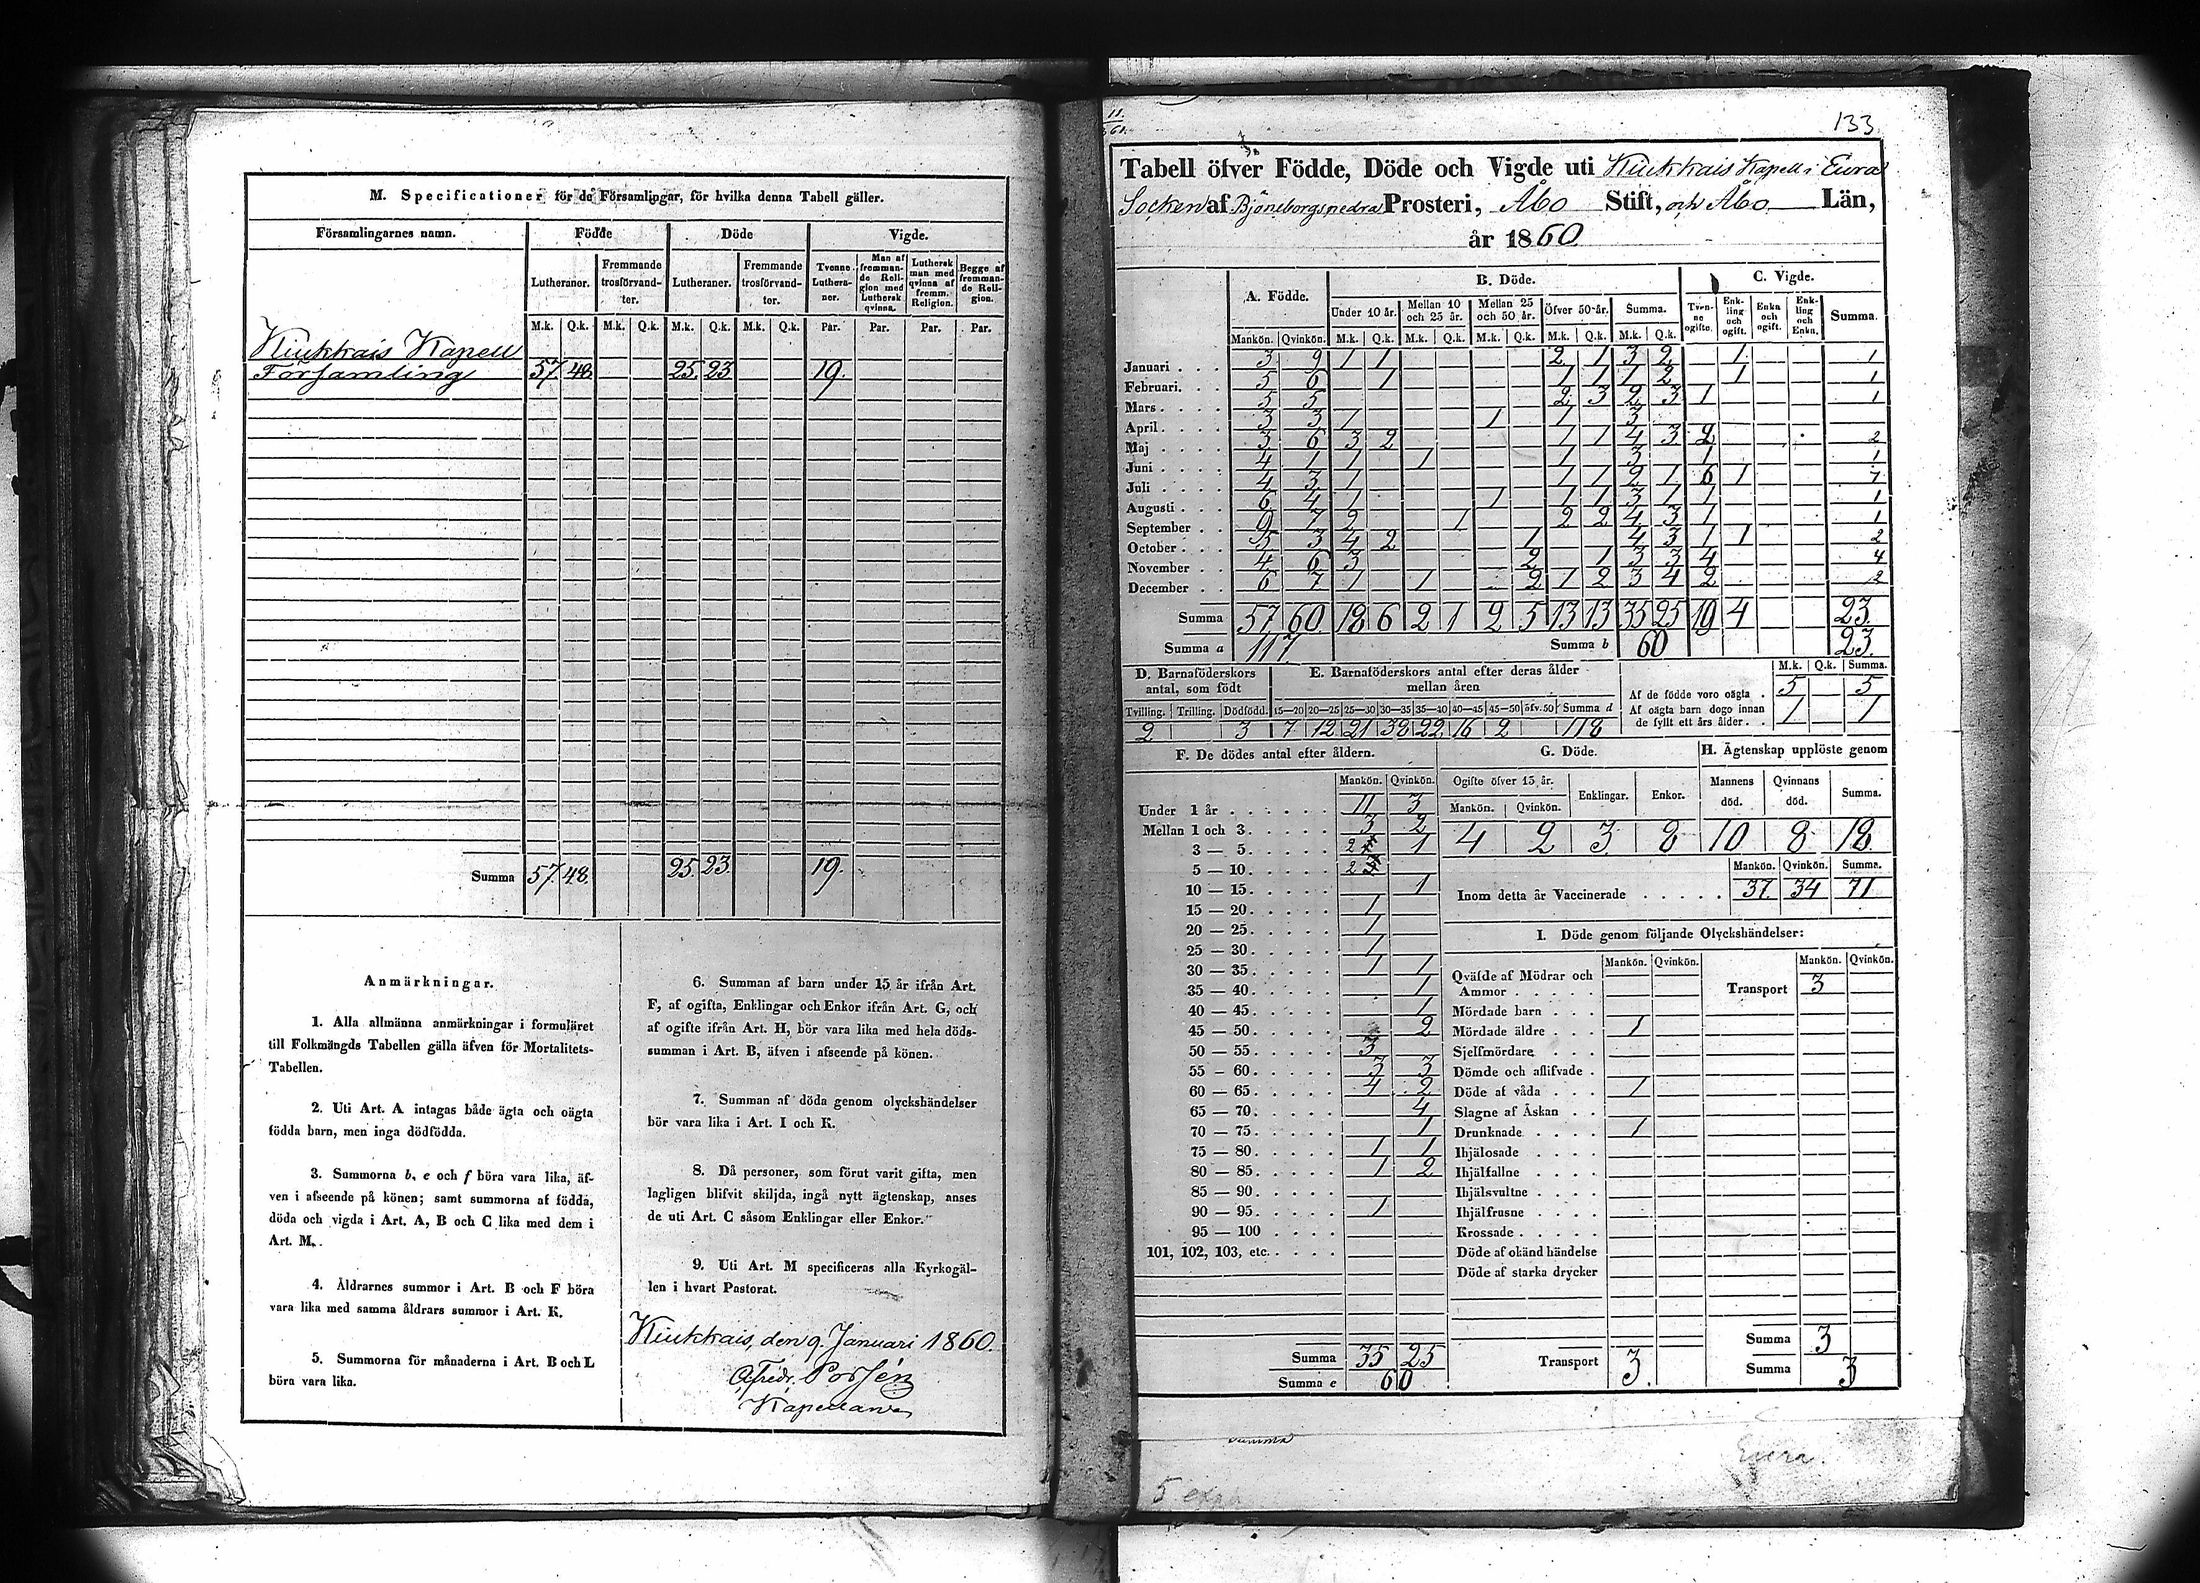 M. Specificationer för de Församlingar, för hvilka denna Tabell gäller.
Församlingarnes namn. Födde Döde Vigde.
Lutheraner. Fremmande trosförvandter. Lutheraner. Fremmande trosförvandter. Tvenne Lutheraner. Man af fremmande Religion med Luthersk qvinna. Luthersk man med qvinna af fremm. Religion. Begge af fremmande Religion.
M.k. Q.k. M.k. Q.k. M.k. Q.k. M.k. Q.k. Par. Par. Par. Par.
Kiukkais Kapell
Församling 57. 48. 25. 23 19.
Summa 57. 48. 25. 23. 19.
Anmärkningar.
1. Alla allmänna anmärkningar i formuläret
till Folkmängds Tabellen gälla äfven för Mortalitets-
Tabellen.
2. Uti Art. A intagas både ägta och oägta
födda barn, men inga dödfödda.
3. Summorna b, e och f böra vara lika, äf-
ven i afseende på könen; samt summorna af födda,
döda och vigda i Art. A, B och C lika med dem i
Art. M.
4. Åldrarnes summor i Art. B och F böra
vara lika med samma åldrars summor i Art. K.
5. Summorna för månaderna i Art. B och L
böra vara lika.
6. Summan af barn under 15 år ifrån Art.
F, af ogifta, Enklingar och Enkor ifrån Art. G, och
af ogifte ifrån Art. H, bör vara lika med hela döds-
summan i Art. B, äfven i afseende på könen.
7. Summan af döda genom olyckshändelser
bör vara lika i Art. I och K.
8. Då personer, som förut varit gifta, men
lagligen blifvit skiljda, ingå nytt ägtenskap, anses
de uti Art. C såsom Enklingar eller Enkor.
9. Uti Art. M specificeras alla Kyrkogäl-
len i hvart Pastorat.
Kiukkais, den 9. Januari 1860.
Alfredr. Porsén
Kapellan
11.
133.
Tabell öfver Födde, Döde och Vigde uti Kiukkais Kapell i Eura
Socken af Björneborgs nedra Prosteri, Åbo Stift, och Åbo Län,
år 1860
A. Födde. B. Döde. C. Vigde.
Under 10 år. Mellan 10 och 25 år. Mellan 25 och 50 år. Öfver 50 år. Summa. Tvenne ogifte. Enkling och ogift. Enka och ogift. Enkling och Enka. Summa.
Mankön. Qvinkön. M.k. Q.k. M.k. Q.k. M.k. Q.k. M.k. Q.k. M.k. Q.k.
Januari 3 9 1 1 2 1 3 2 1 1
Februari. 5 6 1 1 1 1 2 1 1
Mars 5 5 2 3 2 3 1 1
April 3 3 1 1 1 3
Maj 3 6 3 2 1 1 4 3 2 2
Juni 4 1 1 1 1 3 1 1
Juli 4 3 1 1 1 2 1 6 1 7
Augusti 6 4 1 1 1 1 3 1 1 1
September 9 7 2 1 2 2 4 3 1 1
October 5 3 4 2 1 4 3 1 1 2
November 4 6 3 2 1 3 3 4 4
December 6 7 1 1 2 1 2 3 4 2 2
Summa 57 60 18 6 2 1 2 5 13 13 35 25 19 4 23
Summa a 117 Summa b 60 23.
D. Barnaföderskors antal, som födt
Tvilling. Trilling. Dödfödd.
2 3
E. Barnaföderskors antal efter deras ålder mellan åren
15—20 20—25 25—30 30—35 35—40 40—45 45—50 öfv. 50 Summa d
7 12 21 38 22 16 2 118
M.k. Q.k. Summa.
Af de födde voro oägta 5 5
Af oägta barn dogo innan
de fyllt ett års ålder 1 1
F. De dödes antal efter åldern.
Mankön. Qvinkön.
Under 1 år 11 3
Mellan 1 och 3 3 2
3 — 5 2 1
5 — 10 2
10 — 15 1
15 — 20 1
20 — 25 1
25 — 30 1
30 — 35 1 1
35 — 40 1
40 — 45 1
45 — 50 2
50 — 55 3
55 — 60 3 3
60 — 65 4 2
65 — 70 4
70 — 75 1
75 — 80 1 1
80 — 85 1 2
85 — 90
90 — 95 1
95 — 100
101, 102, 103, etc.
Summa 35 25
Summa e 60
G. Döde.
Ogifte öfver 15 år. Enklingar. Enkor.
Mankön. Qvinkön.
4 2 3 8
H. Ägtenskap upplöste genom
Mannens död. Qvinnans död. Summa.
10 8 18
Mankön. Qvinkön. Summa.
Inom detta år Vaccinerade 37. 34 71
I. Döde genom följande Olyckshändelser:
Mankön. Qvinkön. Mankön. Qvinkön.
Qväfde af Mödrar och
Ammor Transport 3
Mördade barn
Mördade äldre 1
Sjelfmördare
Dömde och aflifvade
Döde af våda 1
Slagne af Åskan
Drunknade 1
Ihjälosade
Ihjälfallne
Ihjälsvultne
Ihjälfrusne
Krossade
Döde af okänd händelse
Döde af starka drycker
Summa 3
Transport 3. Summa 3
Summa
Eura.
5 exp.